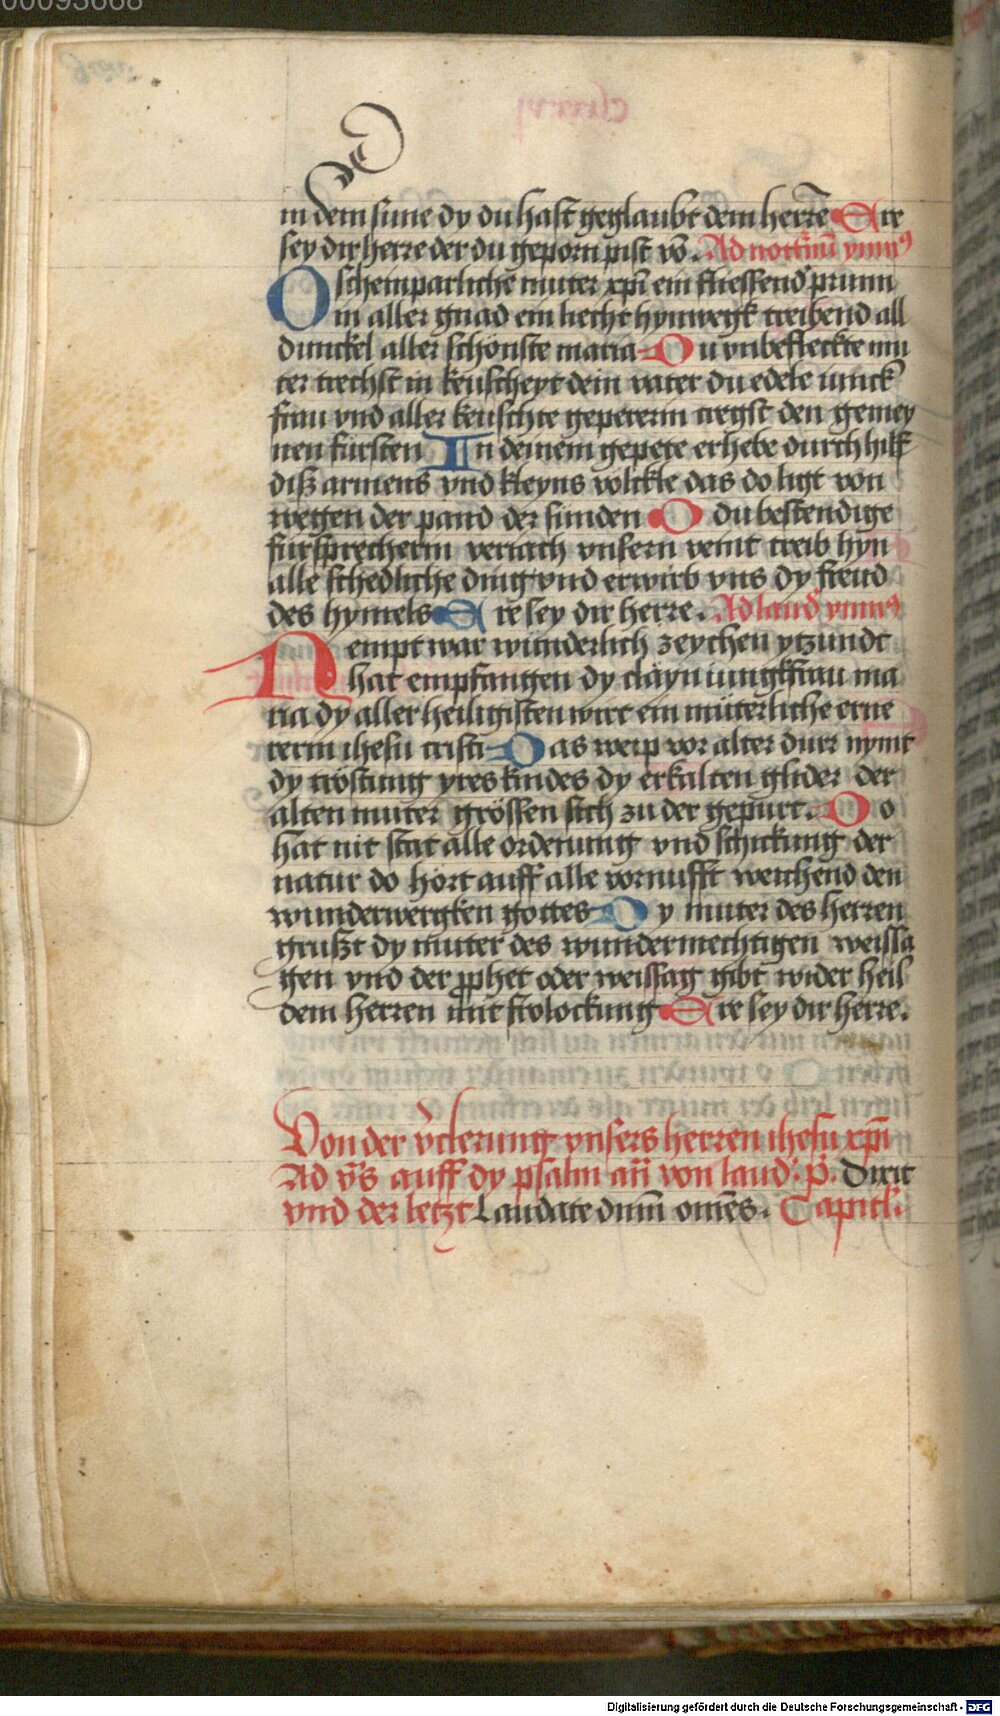 00093668
in dem sinne dy du hast geglaubt dem herrē Ere
sey dir herre der du geporn pist vō. Ad nocturnū ymnꝰ
O scheinparliche muter xp̄i ein fliessend prunn
in aller gnad ein liecht hynwegk treibend all
dunckel aller schonste maria Du vnbefleckte mu
ter trechst in keuscheyt dein vater du edele iunck
frau vnd aller keuschte gepererin tregst den gemey
nen fursten In deinem gepete erhebe durch hilff
diß armens vnd kleyns volckle das do ligt von
wegen der pand der sunden O du bestendige
fursprecherin veriach vnsern veint treib hyn
alle schedliche ding vnd erwirb vns dy freud
des hymels Ere sey dir herre. Ad laud ymnꝰ
Nempt war wunderlich zeychen ytzundt
hat empfangen dy clayn iungkfrau ma
ria dy aller heiligisten wirt ein müterliche erne
rerin ihesu cristi Das weip vor alter durr nymt
dy tröstung yres kindes dy erkalten glider der
alten muter grössen sich zu der gepurt. Do
hat nit stat alle ordenung vnd schickung der
natur do hort auff alle vornufft weichend den
wunderwergken gottes Dy muter des herren
grußt dy muter des wundermechtigen weissa
gen vnd der ꝓphet oder weissag gibt wider heil
dem herren mit frolockung Ere sey dir herre.
Von der v̈clerung vnsers herren ihesu xp̄i
Ad v̄s auff dy psalm an̄ von laud. p̄. Dixit
vnd der letzt Laudate dnm̄ omēs. Capitl.
Digitalisierung gefördert durch die Deutsche Forschungsgemeinschaft - DFG